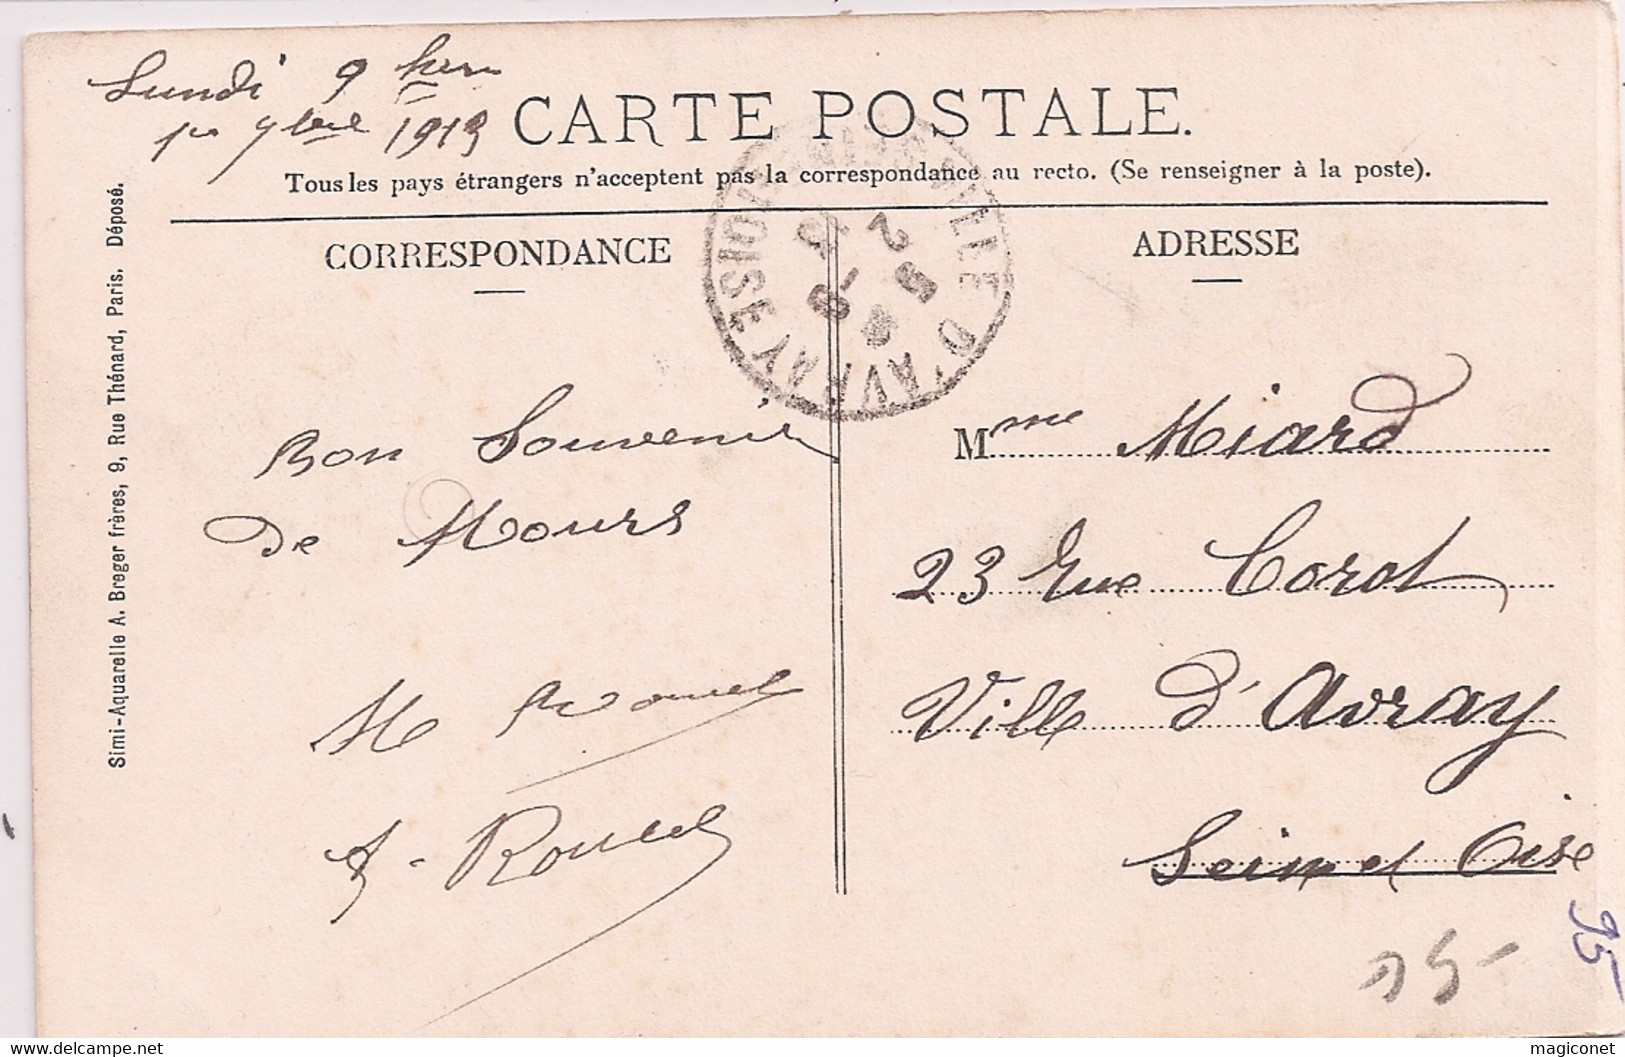 Lundi 9 hres
1er 7bre 1913
CARTE POSTALE.
Tous les pays étrangers n'acceptent pas la correspondance au recto. (Se renseigner à la poste).
CORRESPONDANCE
ADRESSE
Simi-Aquarelle A. Breger frères, 9, Rue Thénard, Paris. Déposé.
VILLE D'AVRAY SEINE-ET-OISE
Bon Souvenir
de Mours
M
A. Rouel
Mme Miard
23 Rue Corot
Ville d'Avray
Seine et Oise
95
magiconet